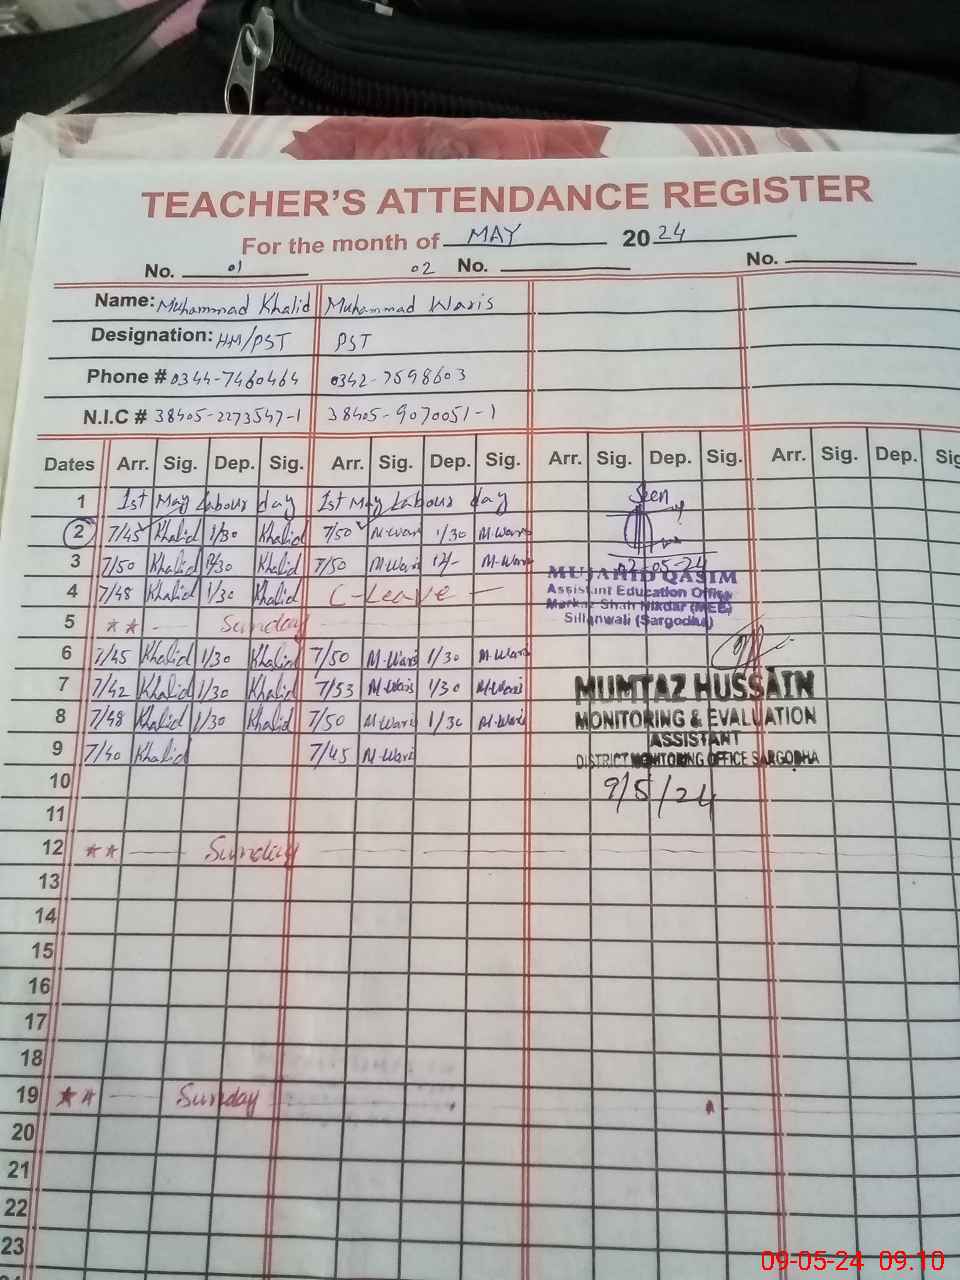 TEACHER'S ATTENDANCE REGISTER
For the month of MAY 2024
No. 01 02 No. No.
Name: Muhammad Khalid Muhammad Waris
Designation: HM/PST PST
Phone # 0344-7460464 0342-7598603
N.I.C # 38405-2273547-1 38405-9070051-1
Dates Arr. Sig. Dep. Sig. Arr. Sig. Dep. Sig. Arr. Sig. Dep. Sig. Arr. Sig. Dep. Sig
1 1st May Labour day 1st May Labour day Seen
2 7/45 Khalid 1/30 Khalid 7/50 M-Waris 1/30 M-Waris
3 7/50 Khalid Khalid 7/50 M-Waris 12/- M-Waris 02-05-24
4 7/48 Khalid 1/30 Khalid C-Leave -
MUJAHID QASIM
Assistant Education Officer
Markaz Shah Nikdar (MEE)
Sillanwali (Sargodha)
5 ** - Sunday
6 7/45 Khalid 1/30 Khalid 7/50 M-Waris 1/30 M-Waris
7 7/42 Khalid 1/30 Khalid 7/53 M-Waris 1/30 M-Waris
8 7/48 Khalid 1/30 Khalid 7/50 M-Waris 1/30 M-Waris
9 7/40 Khalid 7/45 M-Waris
MUMTAZ HUSSAIN
MONITORING & EVALUATION
ASSISTANT
DISTRICT MONITORING OFFICE SARGODHA
9/5/24
10
11
12 ** - Sunday
13
14
15
16
17
18
19 ** - Sunday
20
21
22
23
09-05-24 09.10